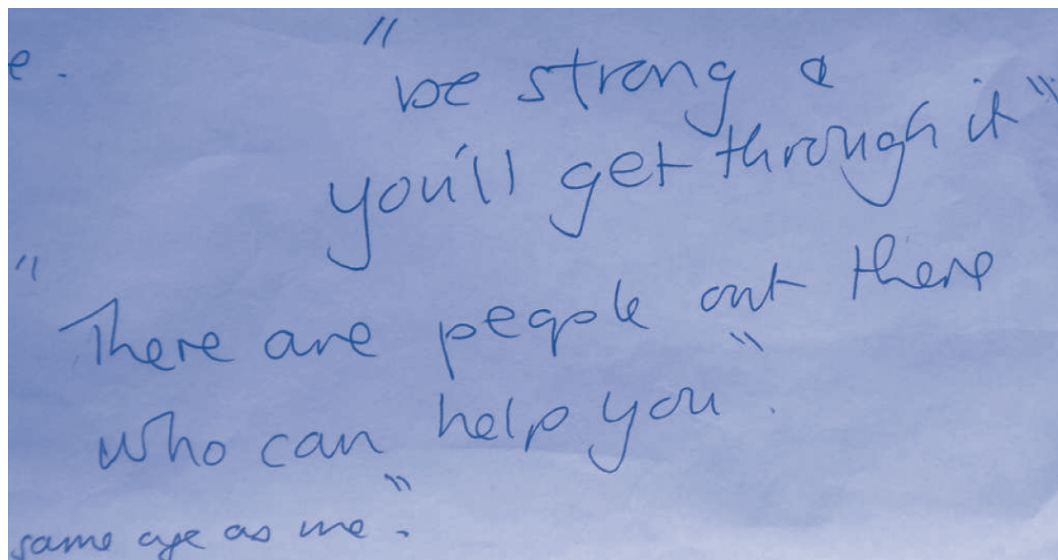 e.
"be strong &
you'll get through it"
"There are people out there
who can help you".
same age as me".